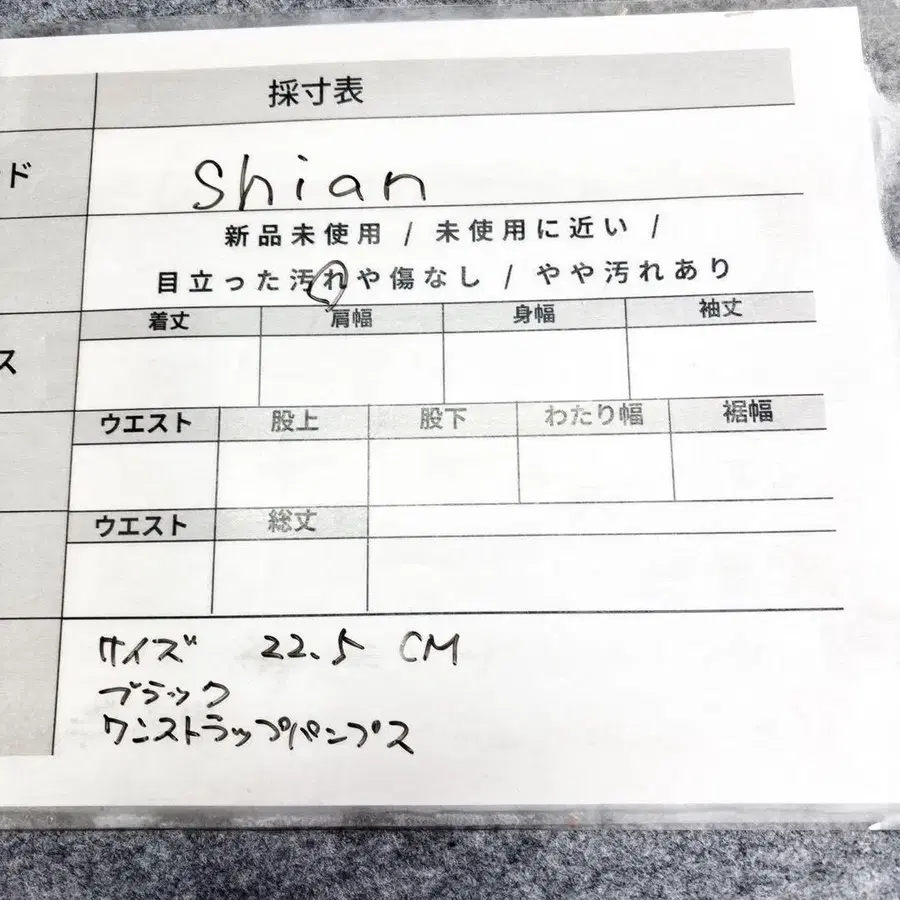 採寸表
ド
Shian
新品未使用 / 未使用に近い /
目立った汚れや傷なし / やや汚れあり
着丈 肩幅 身幅 袖丈
ス
ウエスト 股上 股下 わたり幅 裾幅
ウエスト 総丈
サイズ 22.5 CM
ブラック
ワンストラップパンプス